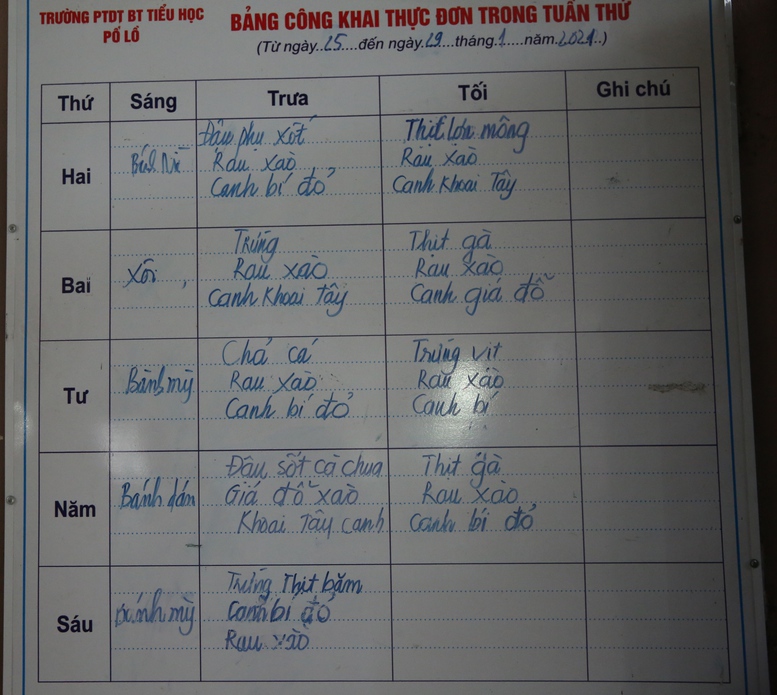 TRƯỜNG PTDT BT TIỂU HỌC
PỐ LỒ
BẢNG CÔNG KHAI THỰC ĐƠN TRONG TUẦN THỨ
(Từ ngày..25....đến ngày.29...tháng.1.....năm.2021..)
Thứ Sáng Trưa Tối Ghi chú
Hai
Đậu phụ xốt
Rau xào
Canh bí đỏ
Thịt lợn mông
Rau xào
Canh Khoai Tây
Bai
Xôi
Trứng
Rau xào
Canh Khoai Tây
Thịt gà
Rau xào
Canh giá đỗ
Tư
Bánh mỳ
Chả cá
Rau xào
Canh bí đỏ
Trứng vịt
Rau xào
Canh bí
Năm
Bánh dán
Đậu sốt cà chua
Giá đỗ xào
Khoai Tây canh
Thịt gà
Rau xào
Canh bí đỏ
Sáu
Bánh mỳ
Trứng Thịt băm
Canh bí đỏ
Rau xào